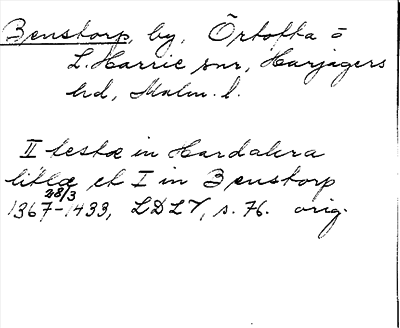 Benstorp, by, Örtofta o
L. Harrie snr, Harjagers
hd, Malm. l.
II testæ in Hardalura
litlæ et I in Benstorp
28/3
1367-1433, LDLV, s. 76. orig.